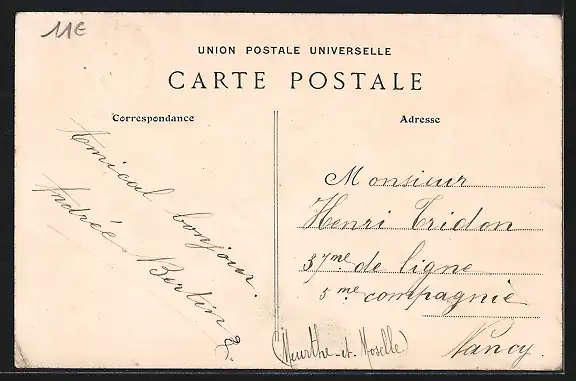 11€
UNION POSTALE UNIVERSELLE
CARTE POSTALE
Correspondance
Amical bonjour.
Andrée Bertin
Adresse
Monsieur
Henri Tridon
37me de ligne
5me compagnie
(Meurthe-et-Moselle) Nancy.